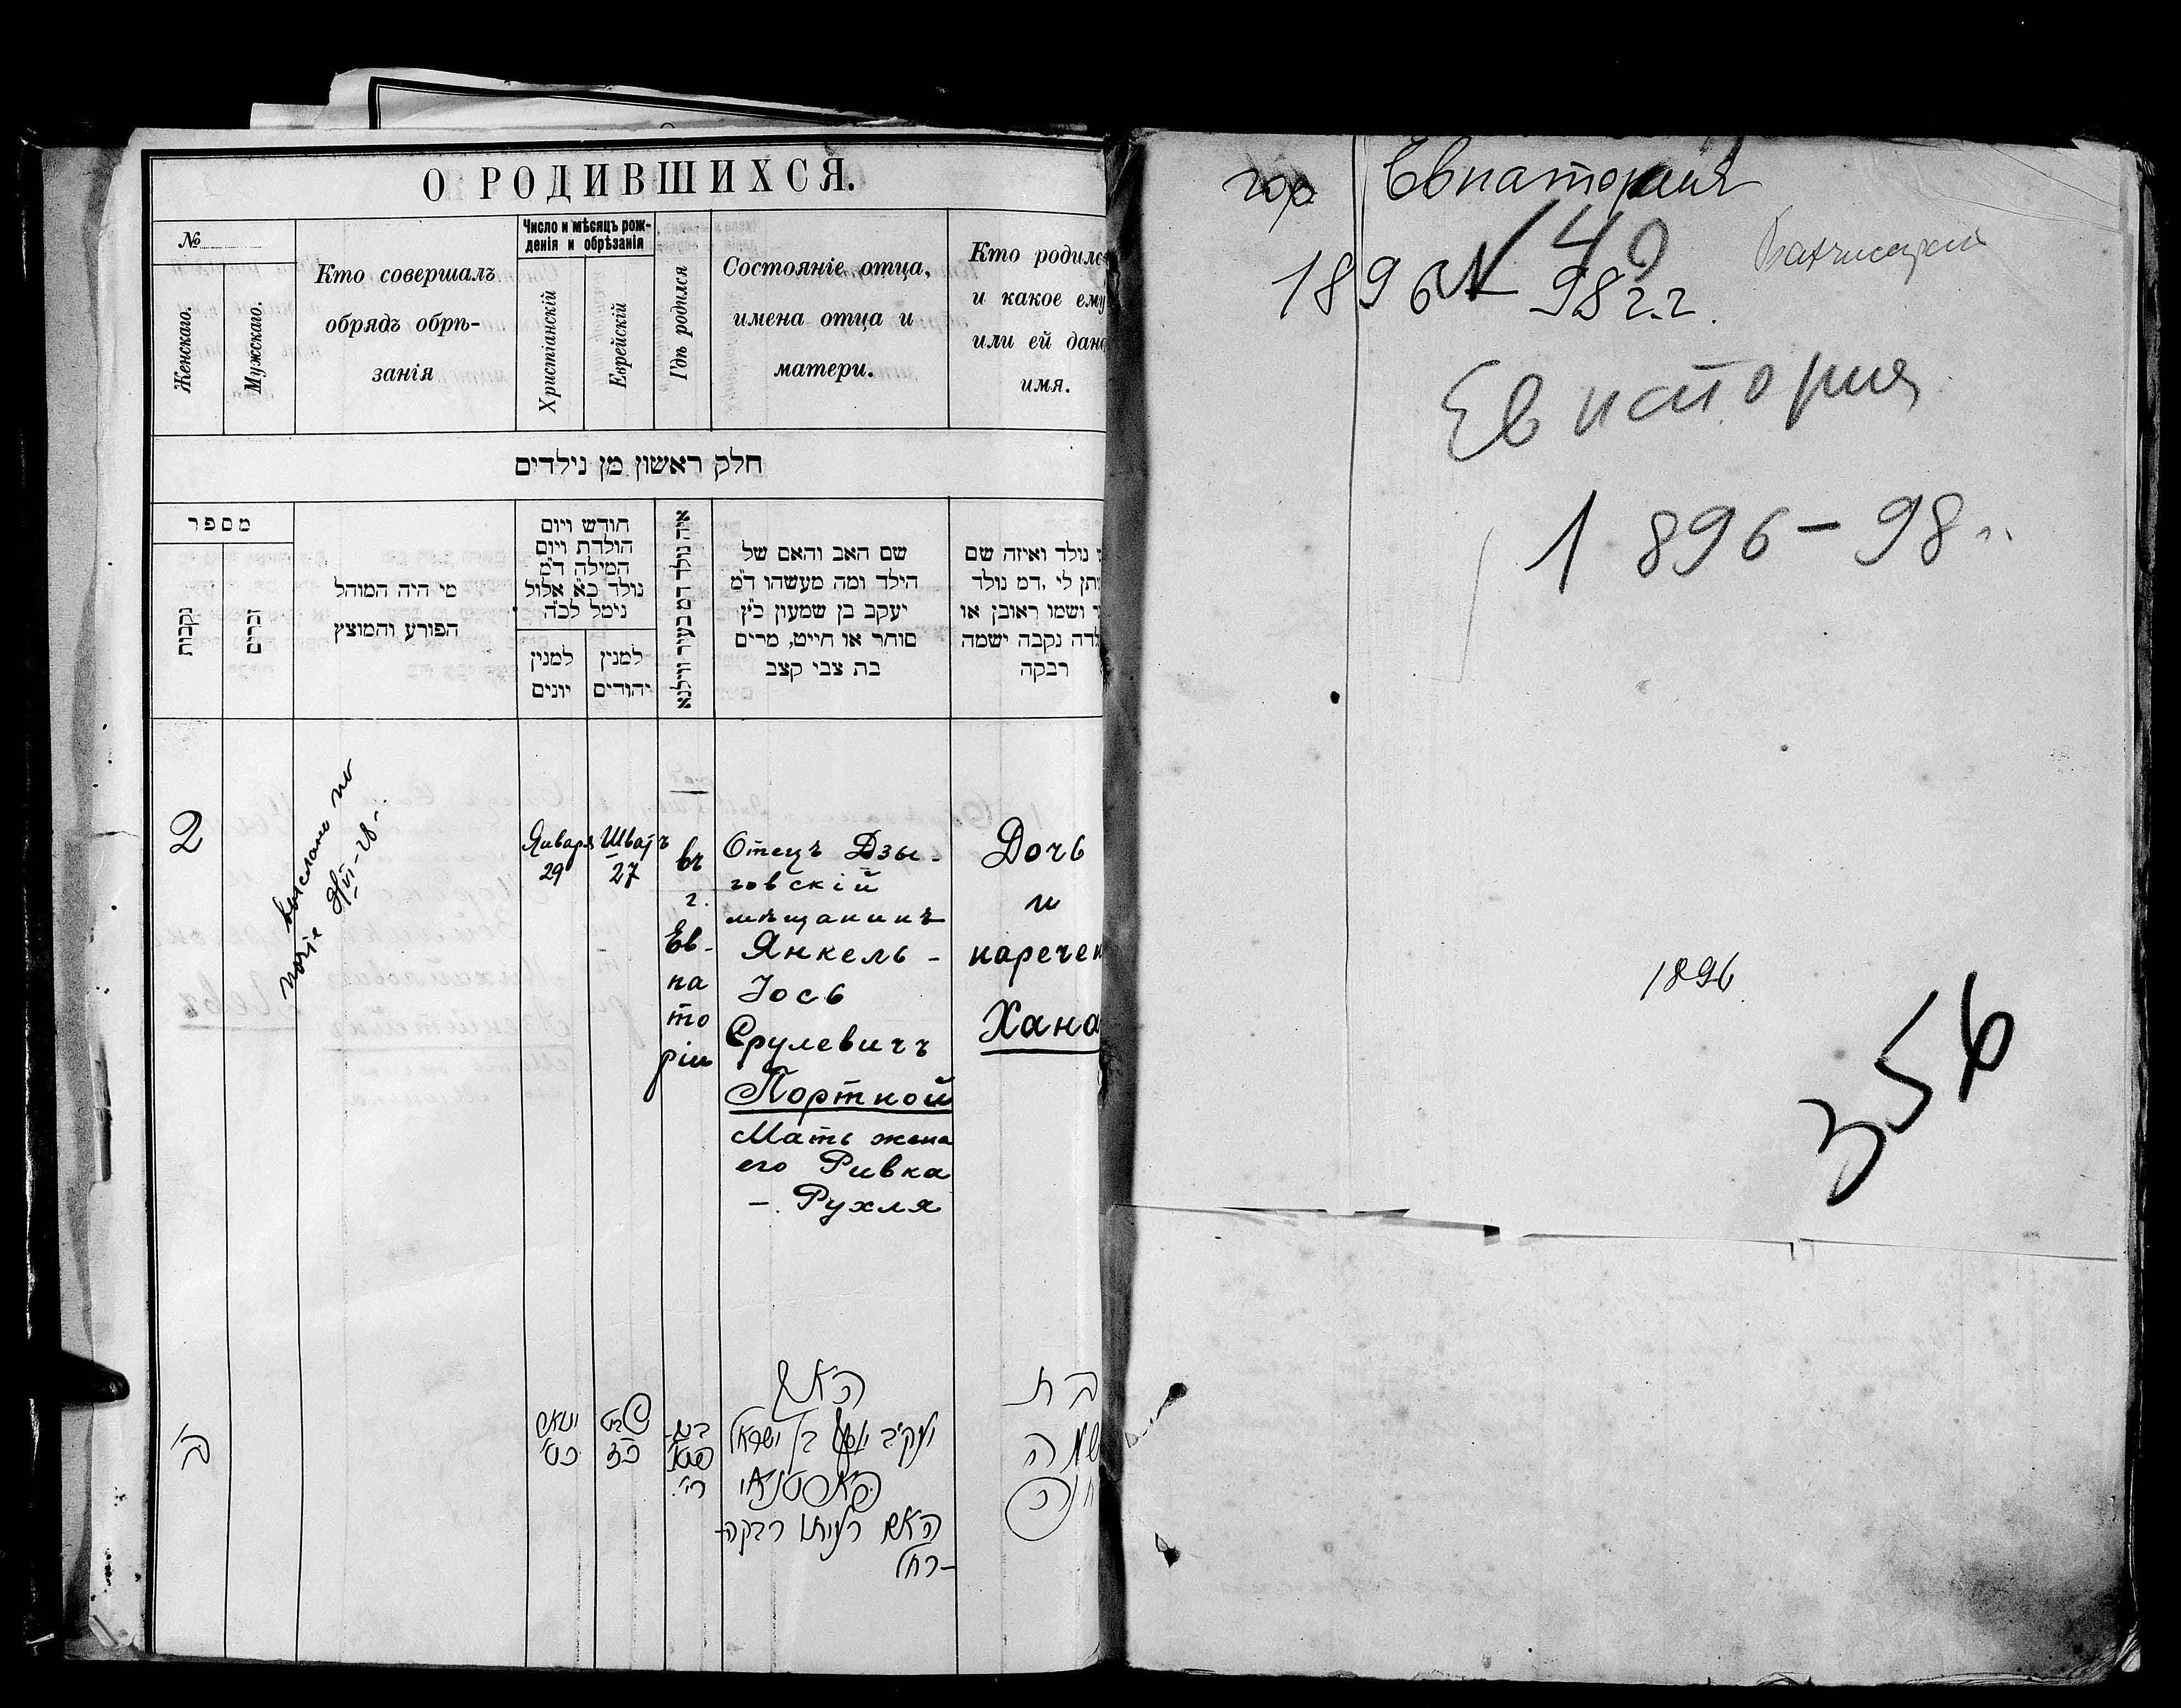 О РОДИВШИХСЯ.
№
Женскаго.
Мужскаго.
Кто совершалъ
обрядъ обрѣ-
занія
Число и мѣсяцъ рож-
денія и обрѣзанія
Христіанскій
Еврейскій
Гдѣ родился
Состояніе отца,
имена отца и
матери.
Кто родилс
и какое ему
или ей дано
имя.
חלק ראשון מן נילדים
מספר
נקבות
זכרים
מי היה המוהל
הפורע והמוצץ
חודש ויום
הולדת ויום
המילה ד"מ
נולד כ"א אלול
נימל לכ"ה
למנין
יונים
למנין
יהודים
איה נולד דמ בעיר ווילנא
שם האב והאם של
הילד ומה מעשהו ד"מ
יעקב בן שמעון כ"ץ
סוחר או חייט, מרים
בת צבי קצב
נולד ואיזה שם
תן לי, דמ נולד
ושמו ראובן או
לדה נקבה ישמה
רבקה
2
выслано
Января
29
Шватъ
27
въ
г.
Ев-
па
то
ріи
Отецъ Дзы-
говскій
мѣщанинъ
Янкель -
Іось
Срулевичъ
Портной
Мать жена
его Ривка
-. Рухля
Дочь
и
наречен
Хана
ב'
ינואר
כט'
שבט
כז
האב
יעקב יוסף בן ישראל
פארטנאי
האם רעיתו רבקה-
-רחל
בת
שמה
חנה
гор Евпатория
N 40
1896 - 98 г.г.
Евпатория
1896-98 г.
1896
356